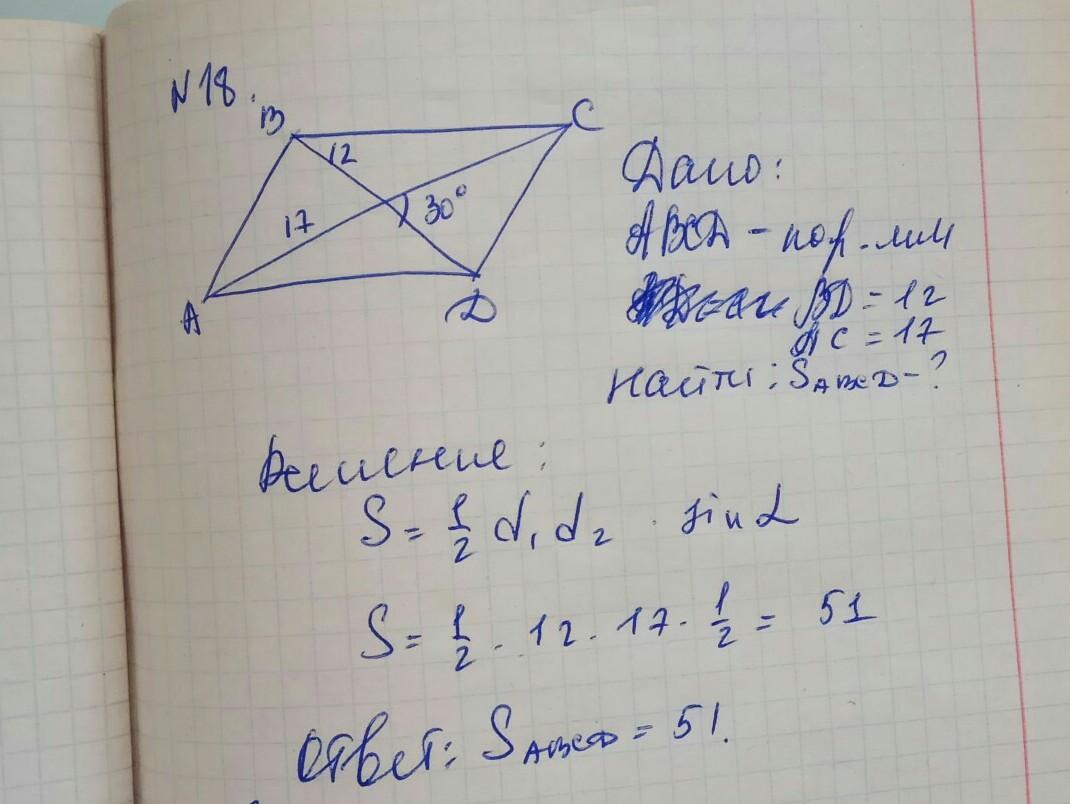 N18.
B
C
12
17
30°
A
D
Дано:
ABCD - пар.мм
BD = 12
AC = 17
Найти: SABCD - ?
Решение:
S = 1/2 d₁ d₂ · sin α
S = 1/2 · 12 · 17 · 1/2 = 51
Ответ: SABCD = 51.